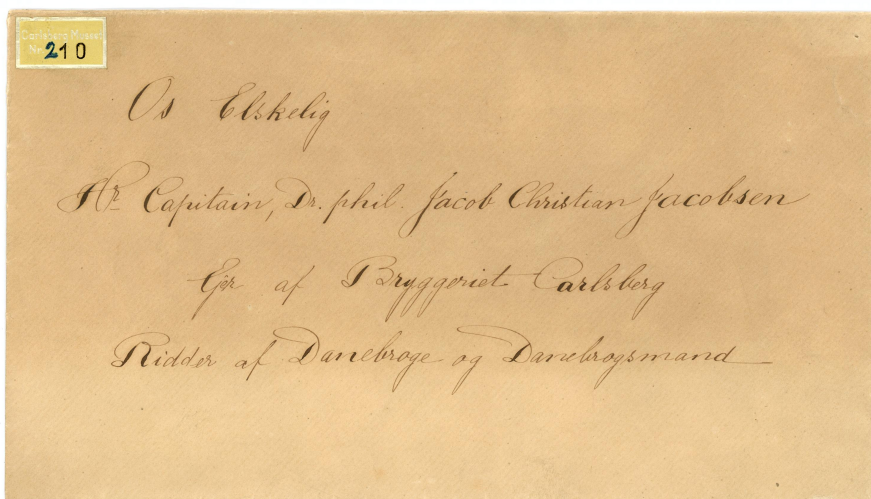 Carlsberg Museet
Nr. 210
Os Elskelig
Hr Capitain, Dr. phil. Jacob Christian Jacobsen
Ejer af Bryggeriet Carlsberg
Ridder af Danebroge og Danebrogsmand